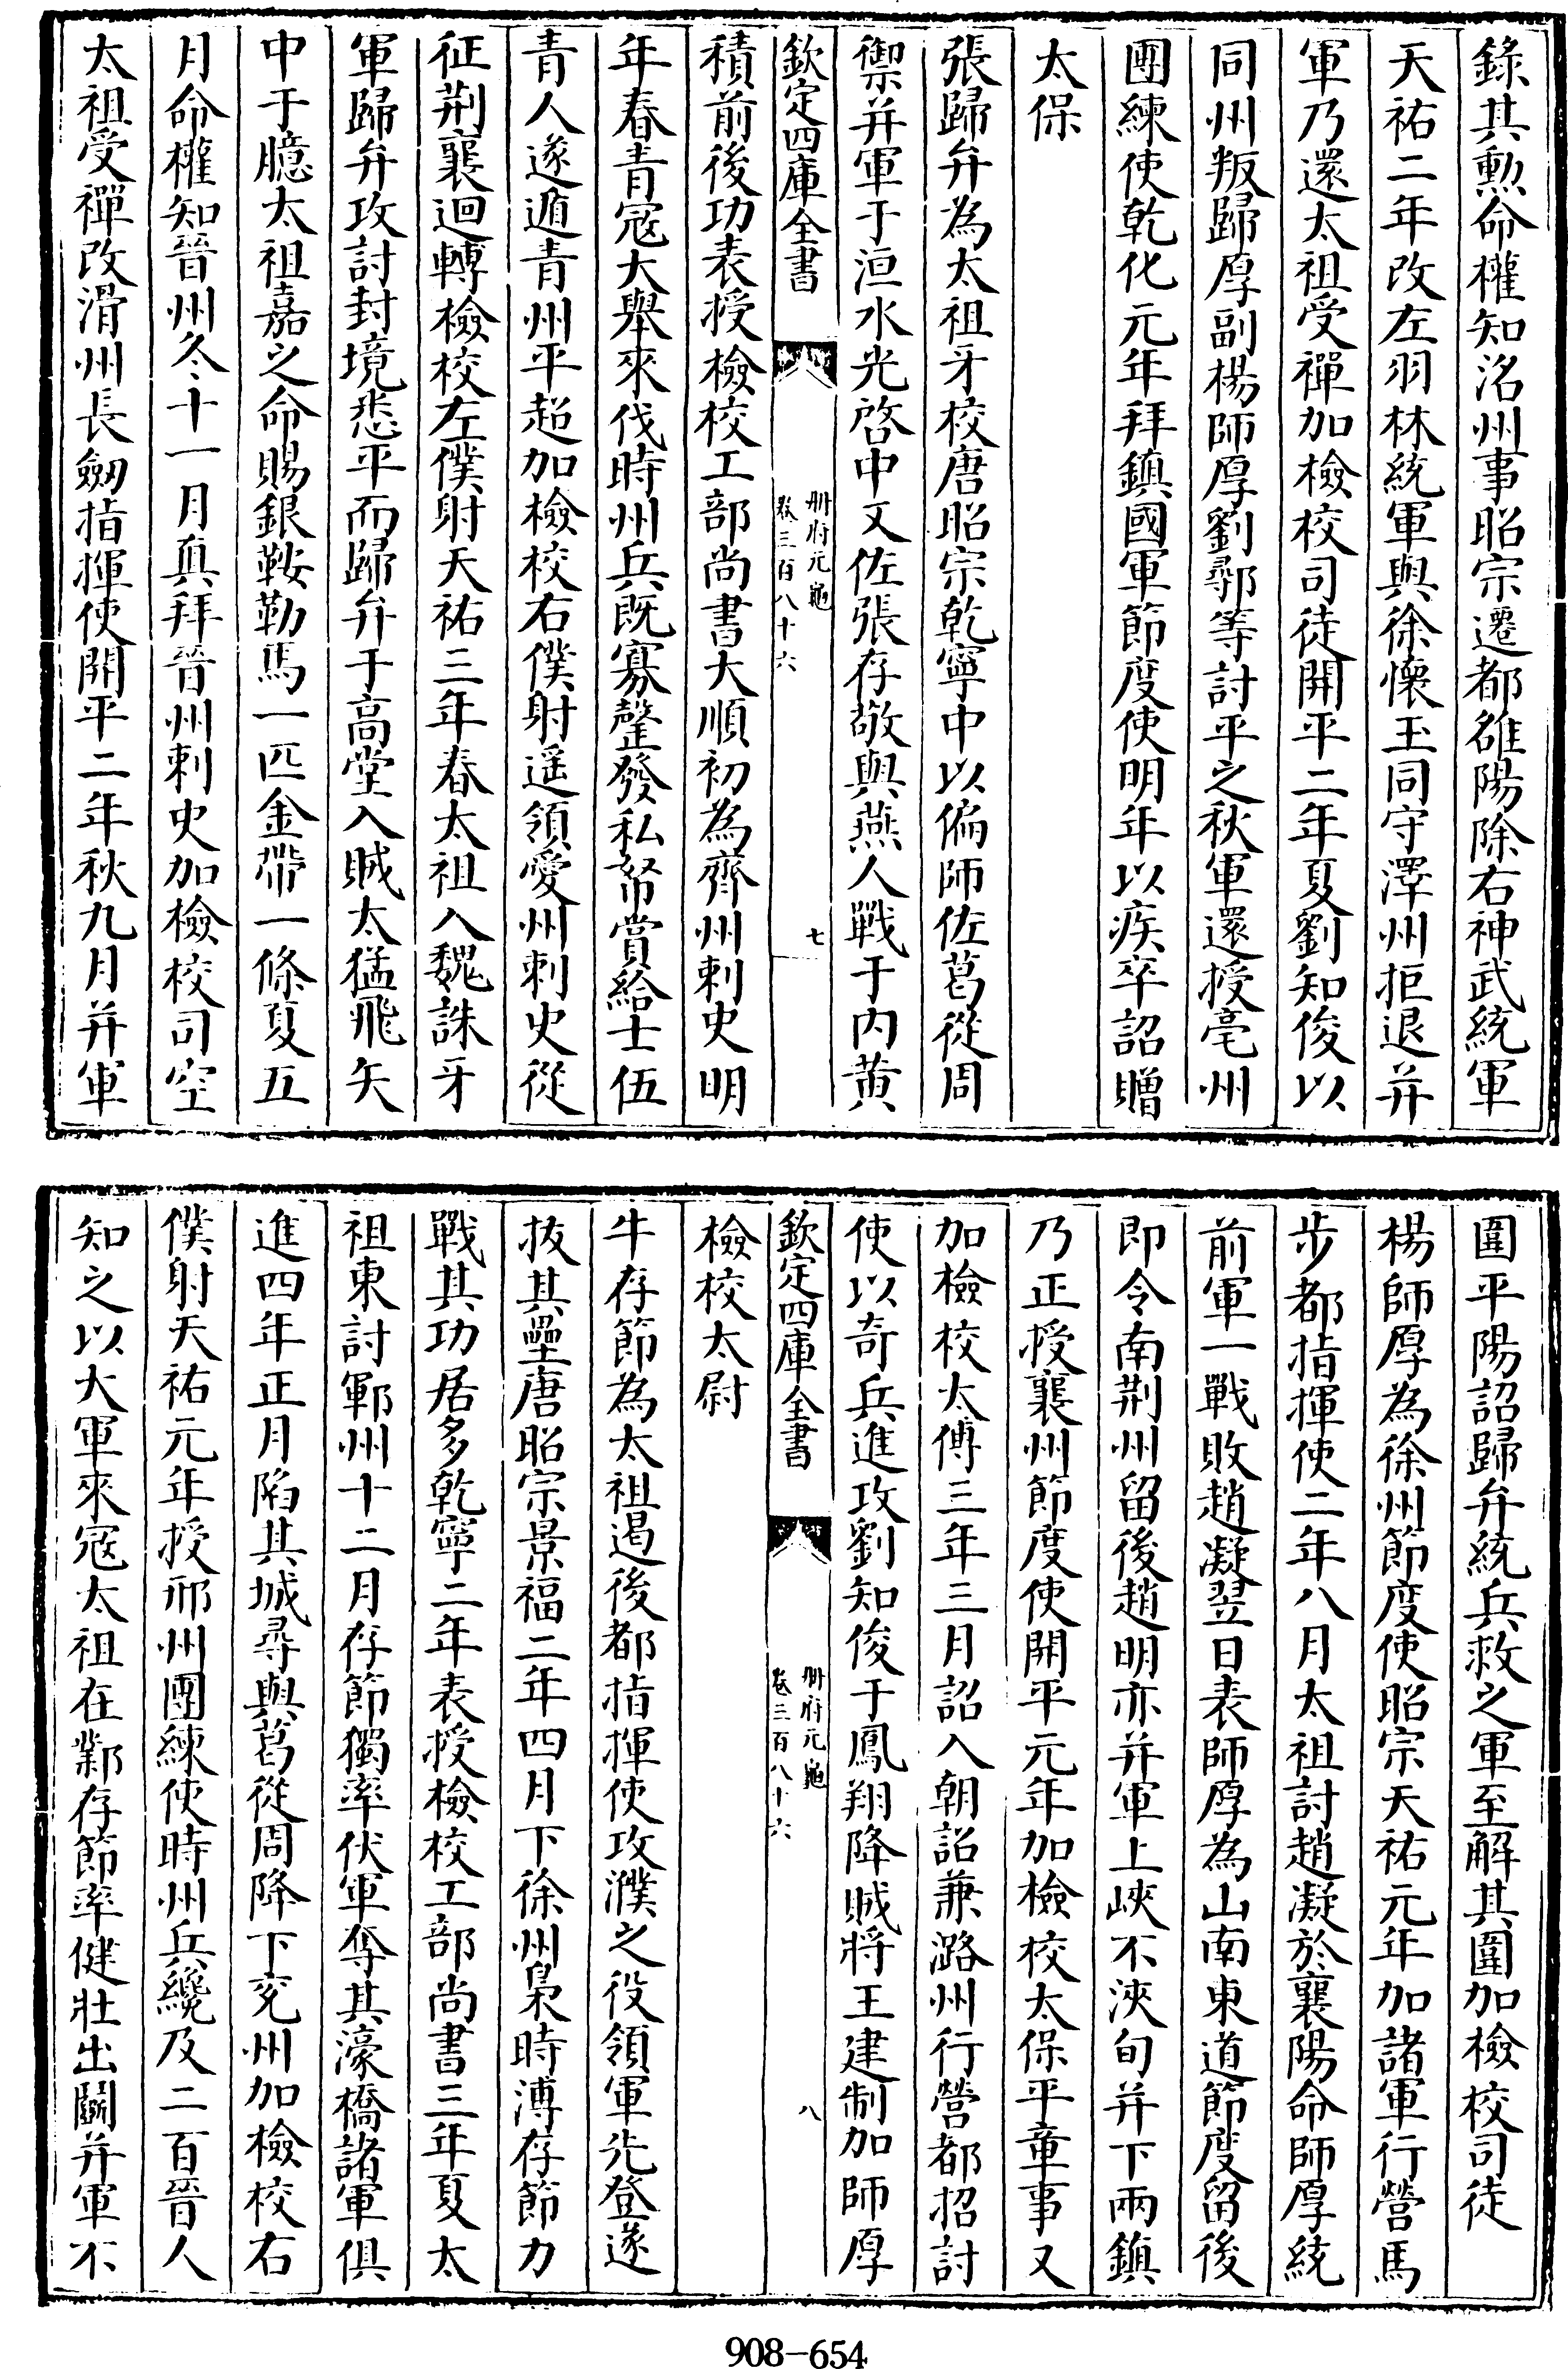 錄其勲命權知洺州事昭宗遷都雒陽除右神武統軍
天祐二年改左羽林統軍與徐懷玉同守澤州拒退并
軍乃還太祖受禪加檢校司徒開平二年夏劉知俊以
同州叛歸厚副楊師厚劉鄩等討平之秋軍還授亳州
團練使乾化元年拜鎮國軍節度使明年以疾卒詔贈
太保
張歸弁為太祖牙校唐昭宗乾寧中以偏師佐葛從周
禦并軍于洹水光啓中又佐張存敬與燕人戰于内黄
欽定四庫全書
冊府元龜
卷三百八十六
七
積前後功表授檢校工部尚書大順初為齊州刺史明
年春青寇大舉來伐時州兵既寡罄發私帑賞給士伍
青人遂遁青州平超加檢校右僕射遥領愛州刺史從
征荆襄迴轉檢校左僕射天祐三年春太祖入魏誅牙
軍歸弁攻討封境悉平而歸弁于高堂入賊太猛飛矢
中于臆太祖嘉之命賜銀鞍勒馬一匹金帶一條夏五
月命權知晉州冬十一月真拜晉州刺史加檢校司空
太祖受禪改滑州長劒指揮使開平二年秋九月并軍
圍平陽詔歸弁統兵救之軍至解其圍加檢校司徒
楊師厚為徐州節度使昭宗天祐元年加諸軍行營馬
步都指揮使二年八月太祖討趙凝於襄陽命師厚統
前軍一戰敗趙凝翌日表師厚為山南東道節度留後
即令南荆州留後趙明亦并軍上峽不浹旬并下兩鎮
乃正授襄州節度使開平元年加檢校太保平章事又
加檢校太傅三年三月詔入朝詔兼潞州行營都招討
使以奇兵進攻劉知俊于鳳翔降賊將王建制加師厚
欽定四庫全書
冊府元龜
卷三百八十六
八
檢校太尉
牛存節為太祖遏後都指揮使攻濮之役領軍先登遂
拔其壘唐昭宗景福二年四月下徐州梟時溥存節力
戰其功居多乾寧二年表授檢校工部尚書三年夏太
祖東討鄆州十二月存節獨率伏軍奪其濠橋諸軍俱
進四年正月陷其城尋與葛從周降下兗州加檢校右
僕射天祐元年授邢州團練使時州兵纔及二百晉人
知之以大軍來寇太祖在鄴存節率健壯出鬭并軍不
908-654